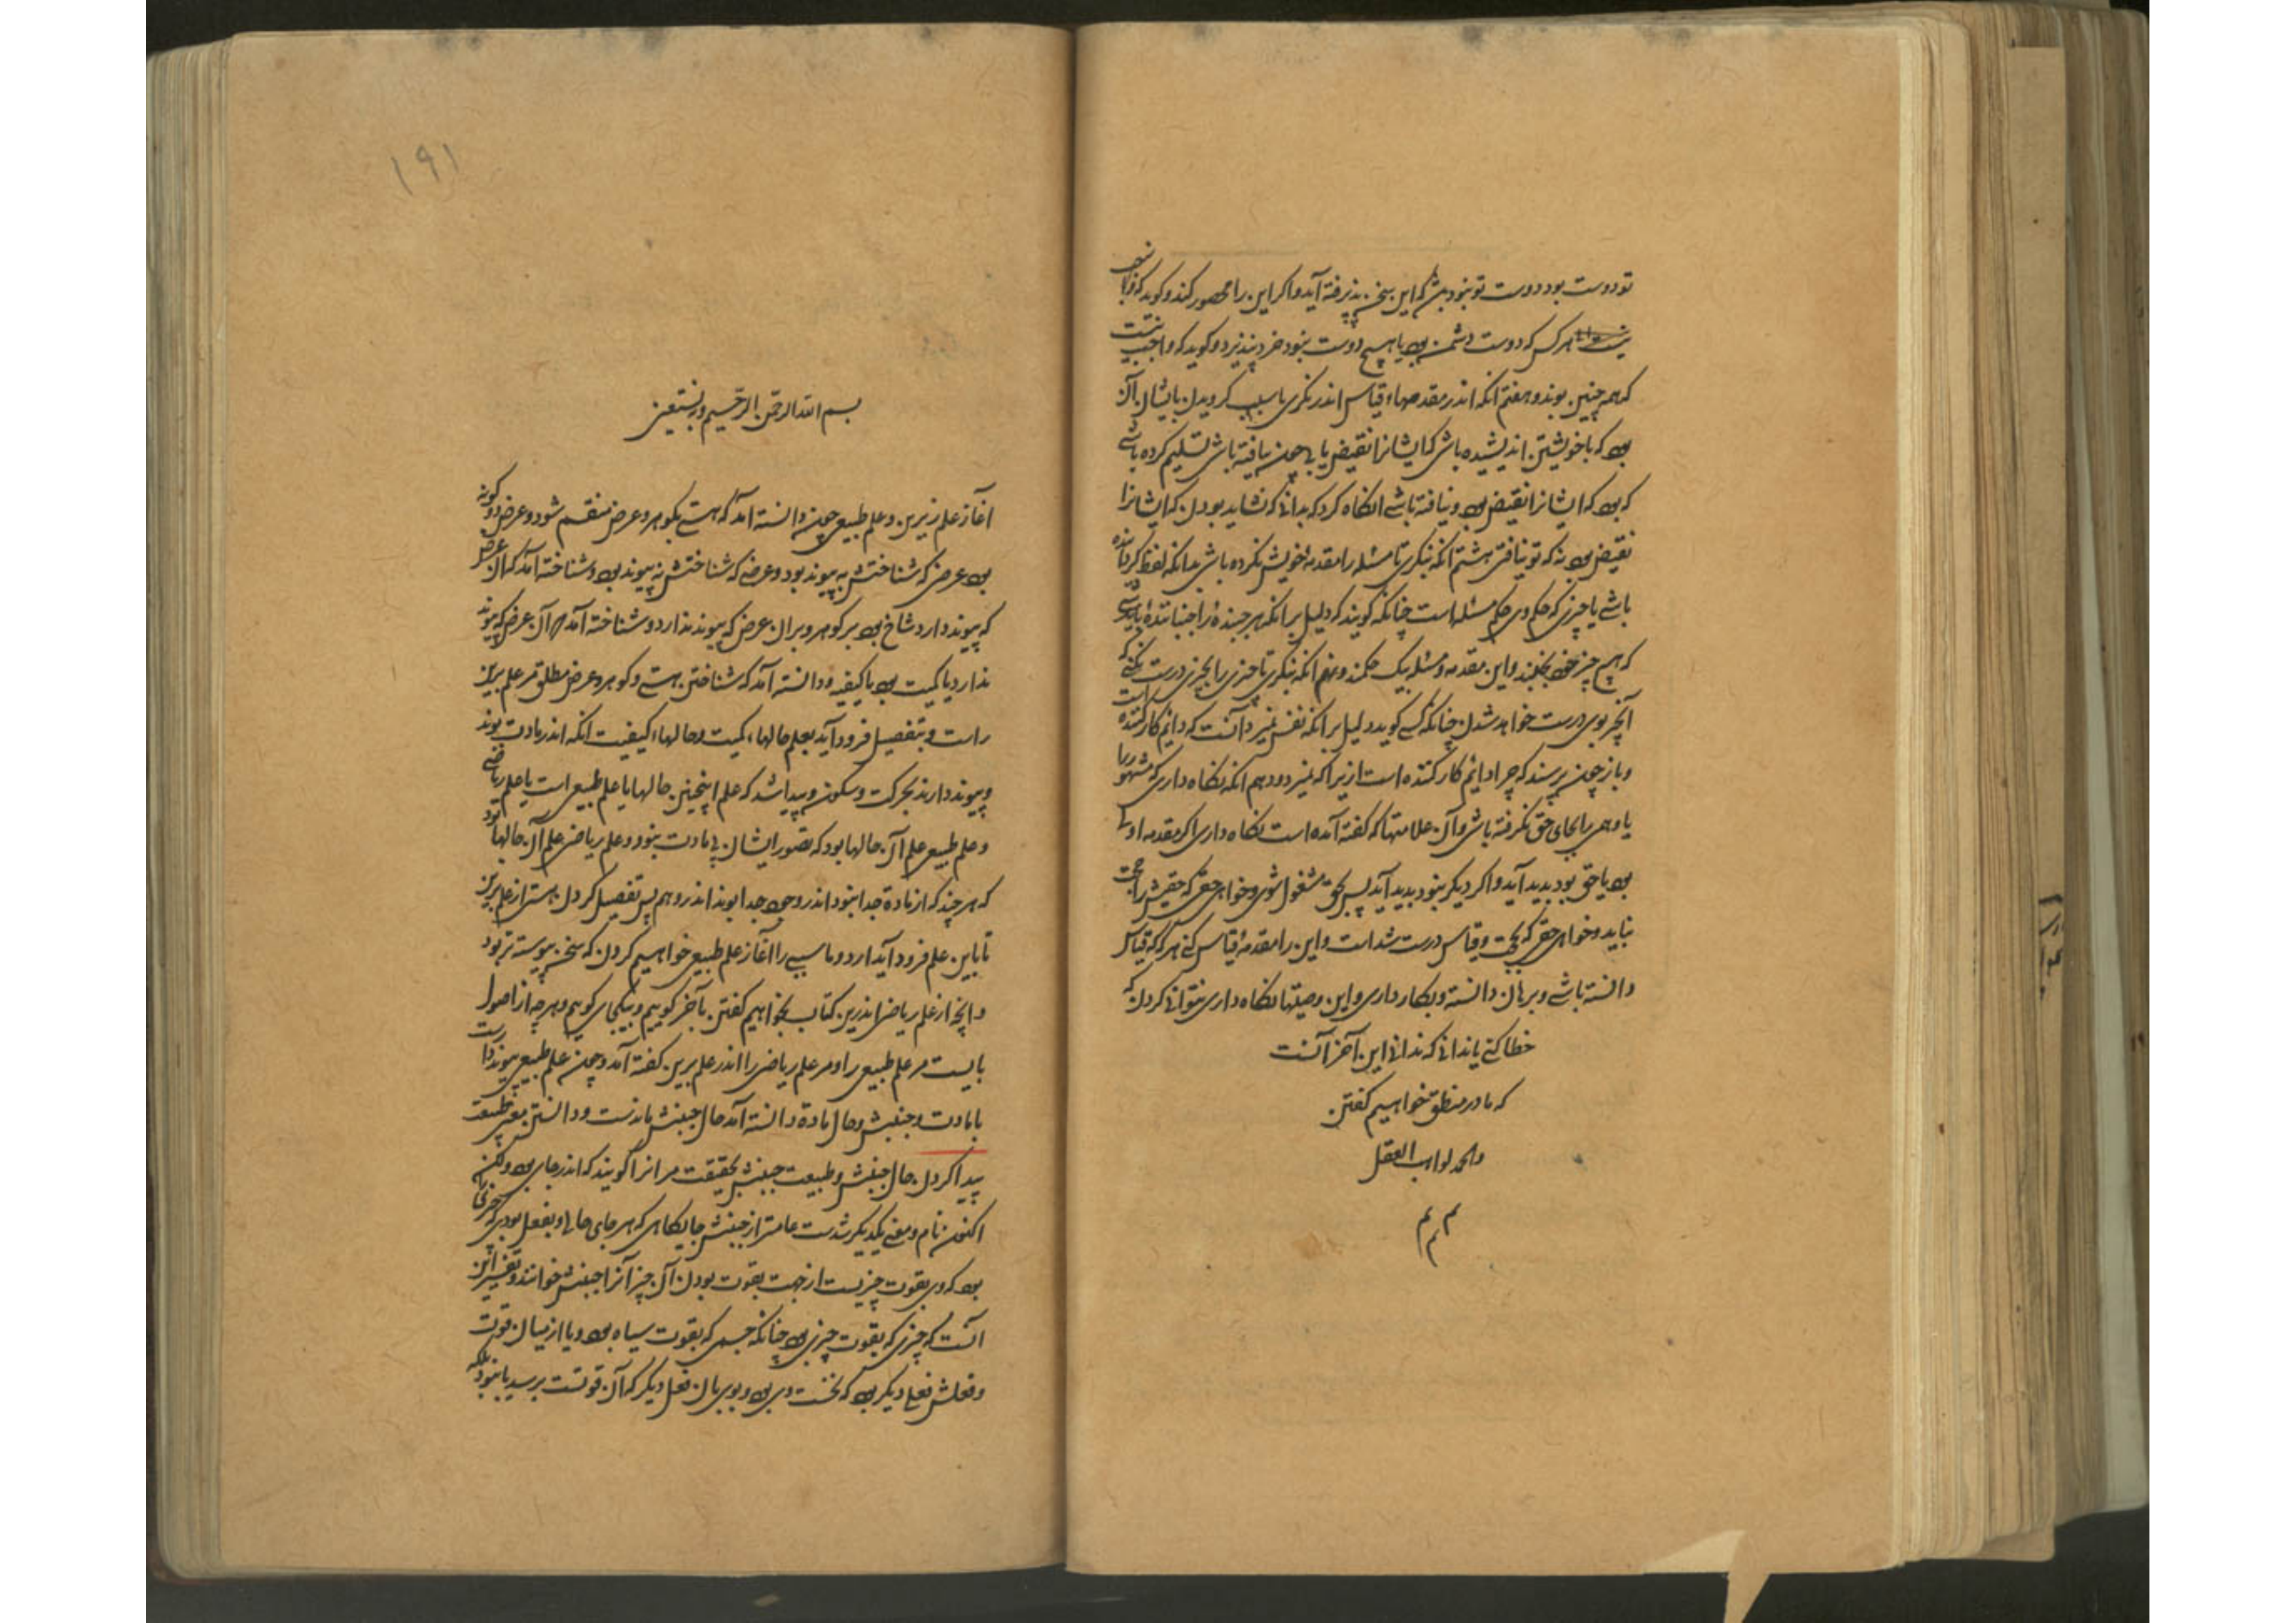 تو دوست بود دوست تو نبود بیشتر که این سخن پذیرفته آید و اکر این را محصور کند و کوید که
هر کس که دوست دشمن بود یا هیچ دوست نبود خرد نپذیرد و کوید که واجب نیست
که همه چنین بوند و هفتم انکه اندر مقدمهاء قیاس اندر نکری تا سبب کرویدن بایشان آن
بود که با خویشتن اندیشیده باشی که ایشانرا نقیض یابی چون نیافته باشی تسلیم کرده باشی
که بود که ایشانرا نقیض بود و نیافته باشی انکاه کرو که بدانی که نشاید بودن که ایشانرا
نقیض بود نه که تو نیافتی هشتم انکه بنکری تا مسئله را مقدمه خویش نکرده باشی بدانکه لفظ کردانیده
باشی یا چیزی که حکم وی حکم مسئله است چنانکه کویند که دلیل برانکه هر جنبنده را جنباننده باید
که هیچ چیز خود نجنبد و این مقدمه و مسئله بیک حکمند و نهم انکه بنکری تا چیزی را بچیزی درست نکنی که
آنچیز بوی درست خواهد شدن چنانکه کسی کوید دلیل برانکه نفس نمیرد آنست که دایم کارکننده است
و باز چون پرسند که چرا دایم کارکننده است ازیرا که نمیرد و دهم آنکه نکاه داری که مشهور را
یا وهمی را بجای حق نکرفته باشی و آن علامتها که کفته آمده است نکاه داری اکر مقدمه اولی
بود یا حق بود پدید آید و اکر دیکر بود پدید آید پس بحق مشغول شوی و خواهی حقی که حقیش را حجت
نباید و خواهی حقی که بحجت و قیاس درست شد است و این را مقدمهٔ قیاس کنی هرکه که قیاس
دانسته باشی و برهان دانسته و بکار داری و این وصیتها نکاه داری نتوانی کردن که
خطا کنی یا ندانی که ندانی این آخر آنست
که ما در منطق خواهیم کفتن
والحمد لواهب العقل
م م م
١٩١
بسم الله الرحمن الرحیم وبه نستعین
آغاز علم زیرین و علم طبیعی چون دانسته آمد که هستی بکوهر و عرض منقسم شود و عرض دو کونه
بود عرضی که شناختنش به پیوند بود و عرضی که شناختنش نه پیوند بود و شناخته آمد که آن عرض
که پیوند دارد شاخ بود بر کوهر و بر ان عرض که پیوند ندارد و شناخته آمد که آن عرض که پیوند
ندارد یا کمیت بود یا کیفیه و دانسته آمد که شناختن هستی و کوهر و عرض مطلق مر علم برین
راست و بتفصیل فرود آید بعلم حالهاء کمیت و حالهاء کیفیت انکه اندر مادت بوند
و پیوند دارند بحرکت و سکون و پیدا شد که علم اینچنین حالها یا علم طبیعی است یا علم ریاضی
و علم طبیعی علم آن حالها بود که تصور ایشان بی مادت نبود و علم ریاضی علم آن حالها بود
که هرچند که از مادة جدا نبود اندر وجود جدا بوند اندر وهم پس تفصیل کردن هستی از علم برین
تا باین علم فرود آید ارد و ما سپس را آغاز علم طبیعی خواهیم کردن که سخن پیوسته تر بود
و انچه از علم ریاضی اندرین کتاب بخواهیم کفتن بآخر کوییم و بیکجای کوییم و هرچه از اصول
بایست مر علم طبیعی را و مر علم ریاضی را اندر علم برین کفته آمد و چون علم طبیعی پیوند داراست
با مادت و جنبش و حال مادة دانسته آمد حال جنبش ماندست و دانستن معنی طبیعت
پیدا کردن حال جنبش و طبیعت جنبش بحقیقت مر انرا کویند که اندر جای بود ولکن
اکنون نام و معنی یکدیکر شدست عامتر از جنبش جایکاهی که هر جای حالی و بفعل بودی که چیزی را
بود که وی بقوت چیزیست از جهت بقوت بودن آن چیز آنرا جنبش خوانند و تفسیر این
آنست که چیزی که بقوت چیزی بود چنانکه جسمی که بقوت سیاه بود و یا از میان قوت
و فعلش فعلی دیکر بود که نخست وی بود و بوی بان فعل دیکر که آن قوتست برسد یا نبود بلکه